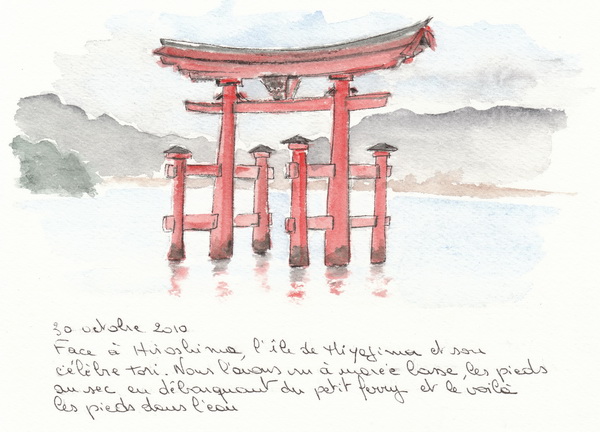 30 octobre 2010
Face à Hiroshima, l'île de Miyajima et son
célèbre tori. Nous l'avons vu à marée basse, les pieds
au sec en débarquant du petit ferry et le voilà
les pieds dans l'eau